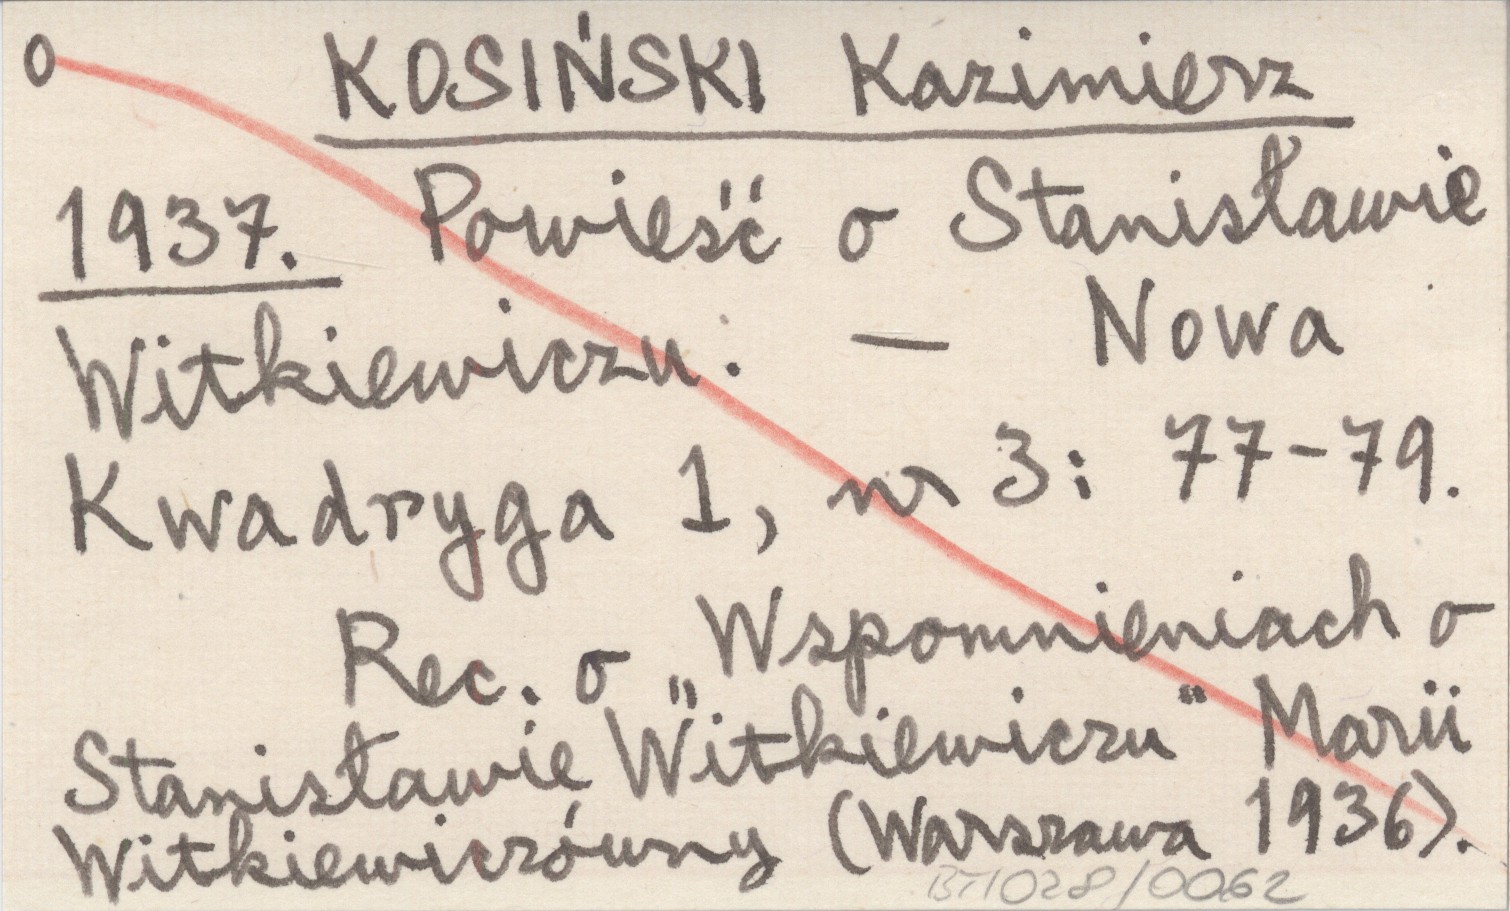 o KOSIŃSKI Kazimierz
1937. Powieść o Stanisławie
Witkiewiczu. — Nowa
Kwadryga 1, nr 3: 77-79.
Rec. o „Wspomnieniach o
Stanisławie Witkiewiczu" Marii
Witkiewiczówny (Warszawa 1936).
BT1028/0062